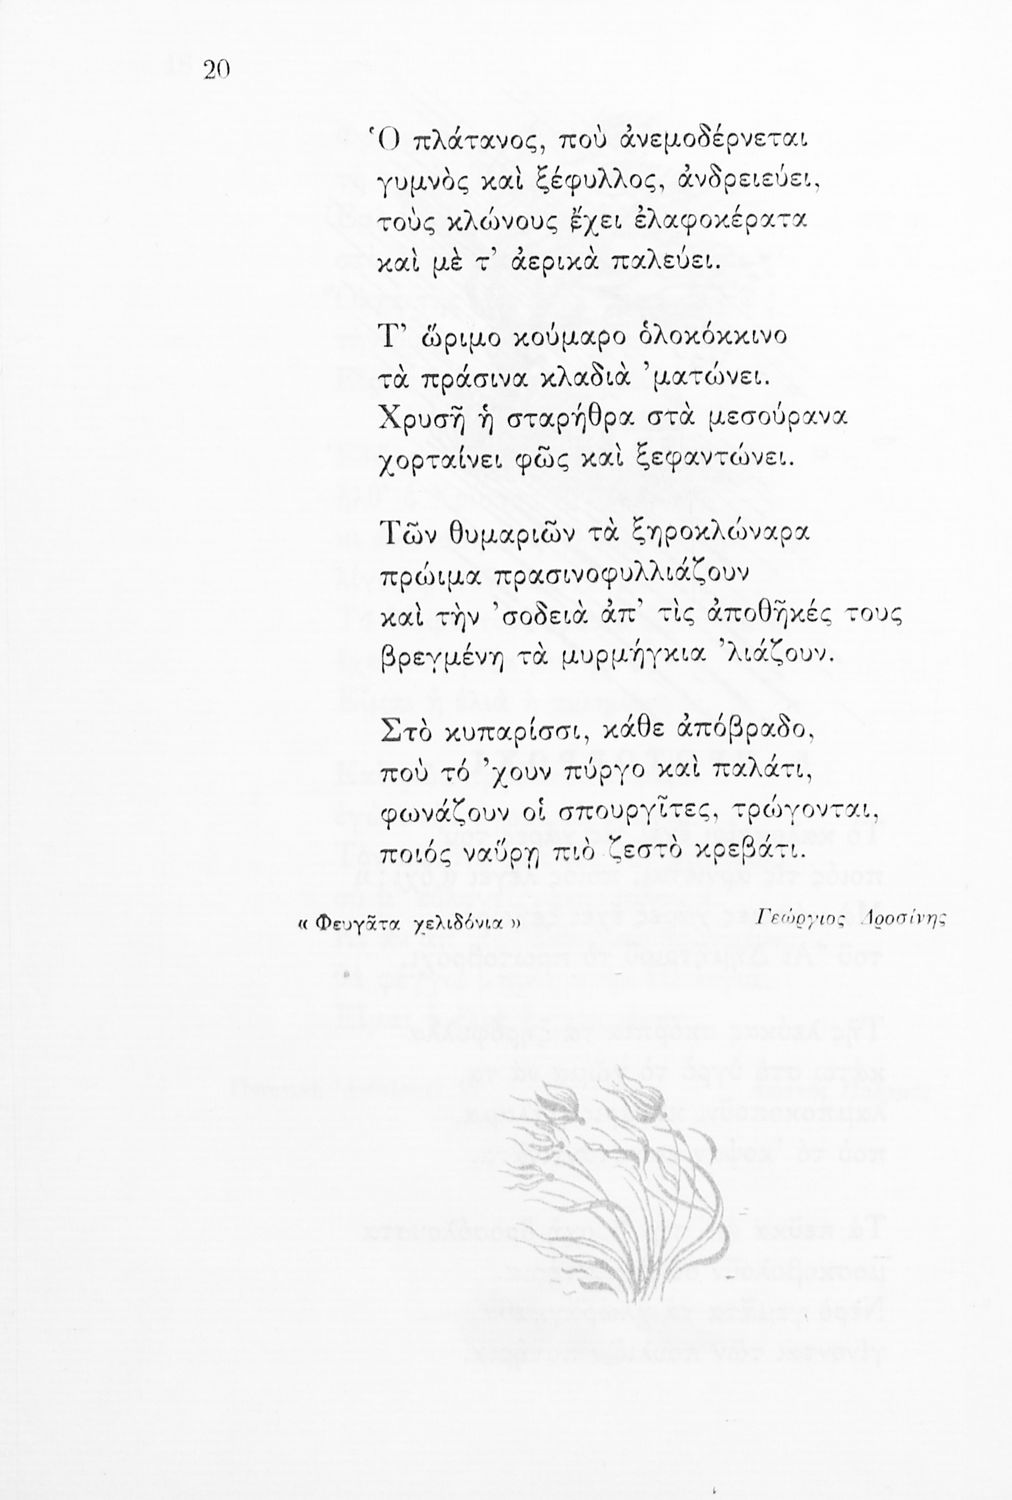 20
Ὁ πλάτανος, ποὺ ἀνεμοδέρνεται
γυμνὸς καὶ ξέφυλλος, ἀνδρειεύει,
τοὺς κλώνους ἔχει ἐλαφοκέρατα
καὶ μὲ τ’ ἀερικὰ παλεύει.
Τ’ ὥριμο κούμαρο ὁλοκόκκινο
τὰ πράσινα κλαδιὰ ’ματώνει.
Χρυσῆ ἡ σταρήθρα στὰ μεσούρανα
χορταίνει φῶς καὶ ξεφαντώνει.
Τῶν θυμαριῶν τὰ ξηροκλώναρα
πρώιμα πρασινοφυλλιάζουν
καὶ τὴν ’σοδειὰ ἀπ’ τὶς ἀποθῆκές τους
βρεγμένη τὰ μυρμήγκια ’λιάζουν.
Στὸ κυπαρίσσι, κάθε ἀπόβραδο,
ποὺ τό ’χουν πύργο καὶ παλάτι,
φωνάζουν οἱ σπουργῖτες, τρώγονται,
ποιός ναὕρῃ πιὸ ζεστὸ κρεβάτι.
« Φευγᾶτα χελιδόνια » Γεώργιος Δροσίνης